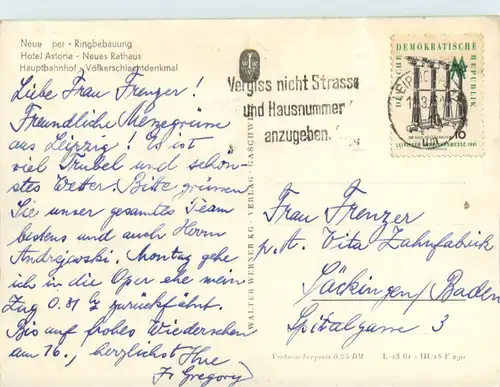 Neue per - Ringbebauung
Hotel Astoria - Neues Rathaus
Hauptbahnhof - Völkerschlachtdenkmal
Liebe Frau Frenzer!
Freundliche Messegrüsse
aus Leipzig! Es ist
viel Trubel und schön-
stes Wetter. Bitte grüssen
Sie unser gesamtes Team
bestens und auch Herrn
Andrejewski. Montag gehe
ich in die Oper ehe mein
Zug 0.31 zurückfährt.
Bis auf frohes Wiedersehen
am 16., herzlichst Ihre
Gregory
WALTER WERNER KG · VERLAG ·
Vergiss nicht Strasse
und Hausnummer
anzugeben.
DEUTSCHE
DEMOKRATISCHE
REPUBLIK
16
LEIPZIGER FRÜHJAHRSMESSE 1961
Frau Frenzer
p. A. Vita Zahnfabrik
Säckingen/Baden
Spitalgasse 3
Verbraucherpreis 0.25 DM L-13/61 - III/18/8